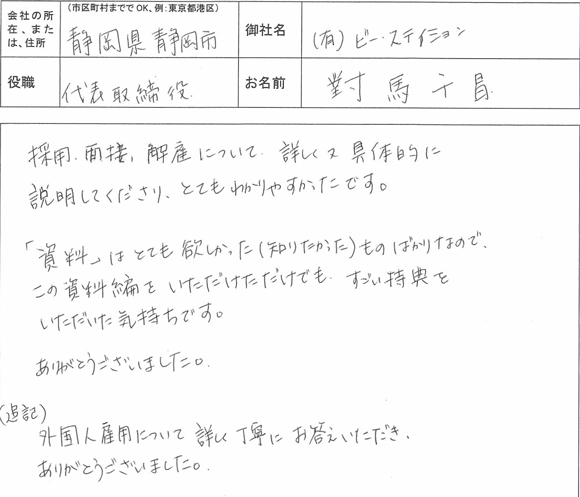 会社の所在、または、住所
(市区町村まででOK、例：東京都港区)
静岡県静岡市
御社名
(有)ビー・ステイション
役職
代表取締役
お名前
對馬千昌
採用、面接、解雇について、詳しく又具体的に
説明してくださり、とてもわかりやすかったです。
「資料」はとても欲しかった(知りたかった)ものばかりなので、
この資料編をいただけただけでも、すごい特典を
いただいた気持ちです。
ありがとうございました。
(追記)
外国人雇用について詳しく丁寧にお答えいただき、
ありがとうございました。